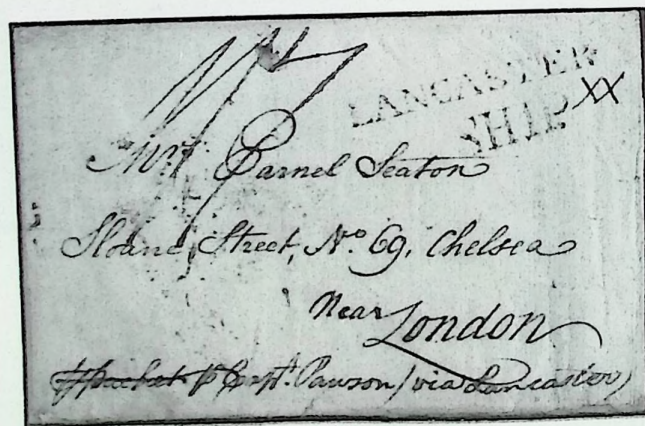 LANCASTER
SHIP
XX
Mrs Parnel Seaton
Sloane Street, No. 69, Chelsea
Near London
pr Capt. Pawson (via Lancaster)